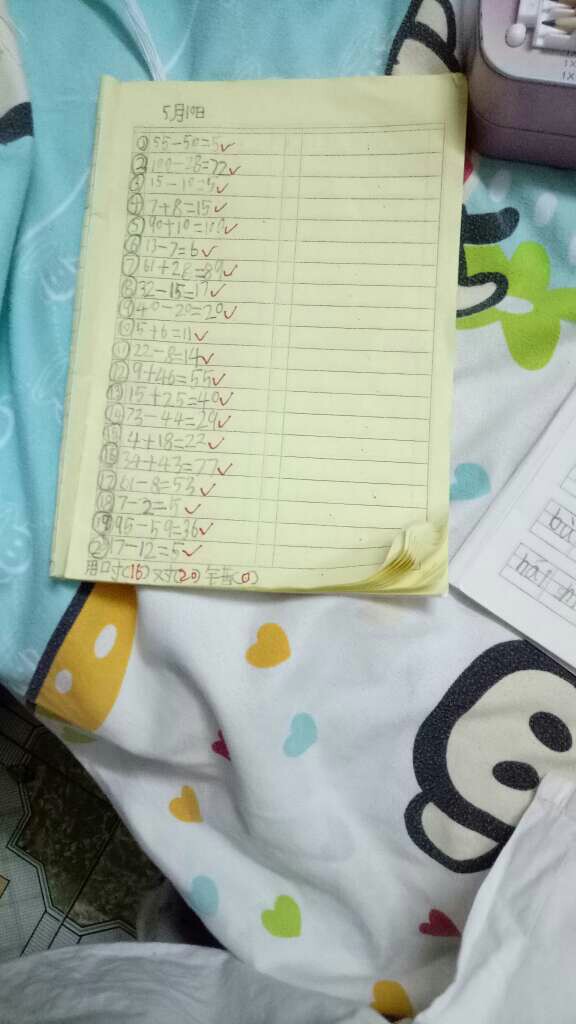 5月10日
①55-50=5✓
②100-28=72✓
③15-10=5✓
④7+8=15✓
⑤90+10=100✓
⑥13-7=6✓
⑦61+28=89✓
⑧32-15=17✓
⑨40-20=20✓
⑩5+6=11✓
⑪22-8=14✓
⑫9+46=55✓
⑬15+25=40✓
⑭73-44=29✓
⑮4+18=22✓
⑯34+43=77✓
⑰61-8=53✓
⑱7-2=5✓
⑲95-59=36✓
⑳17-12=5✓
用时(16)对(20)午昔(0)
bù